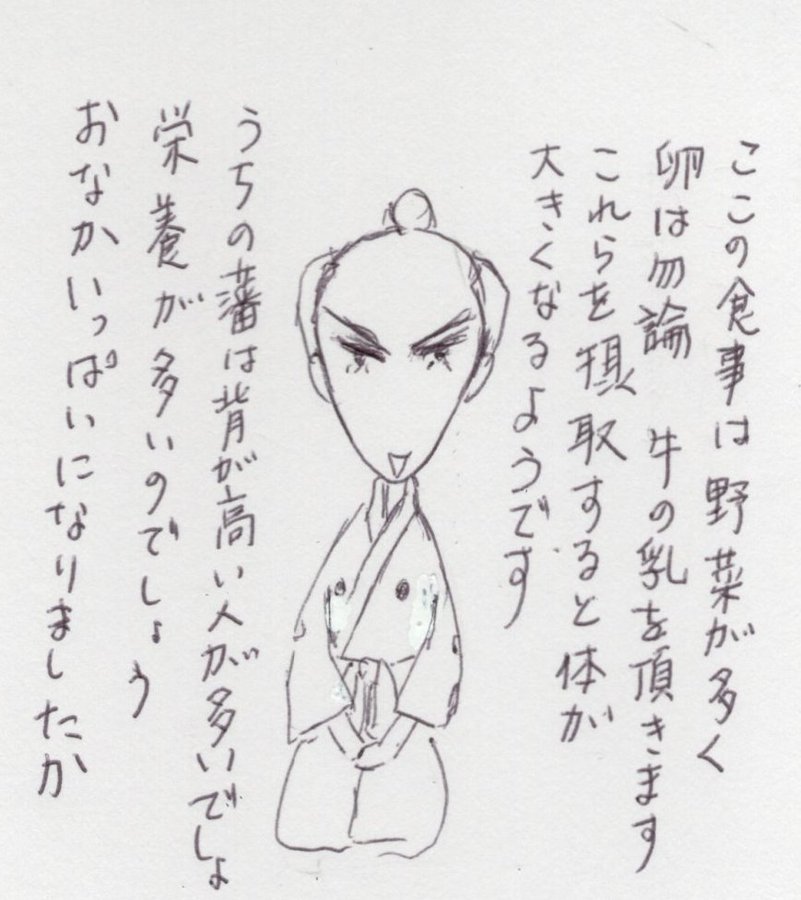 ここの食事は野菜が多く
卵は勿論 牛の乳を頂きます
これらを摂取すると体が
大きくなるようです
うちの藩は背が高い人が多いでしょ
栄養が多いのでしょう
おなかいっぱいになりましたか